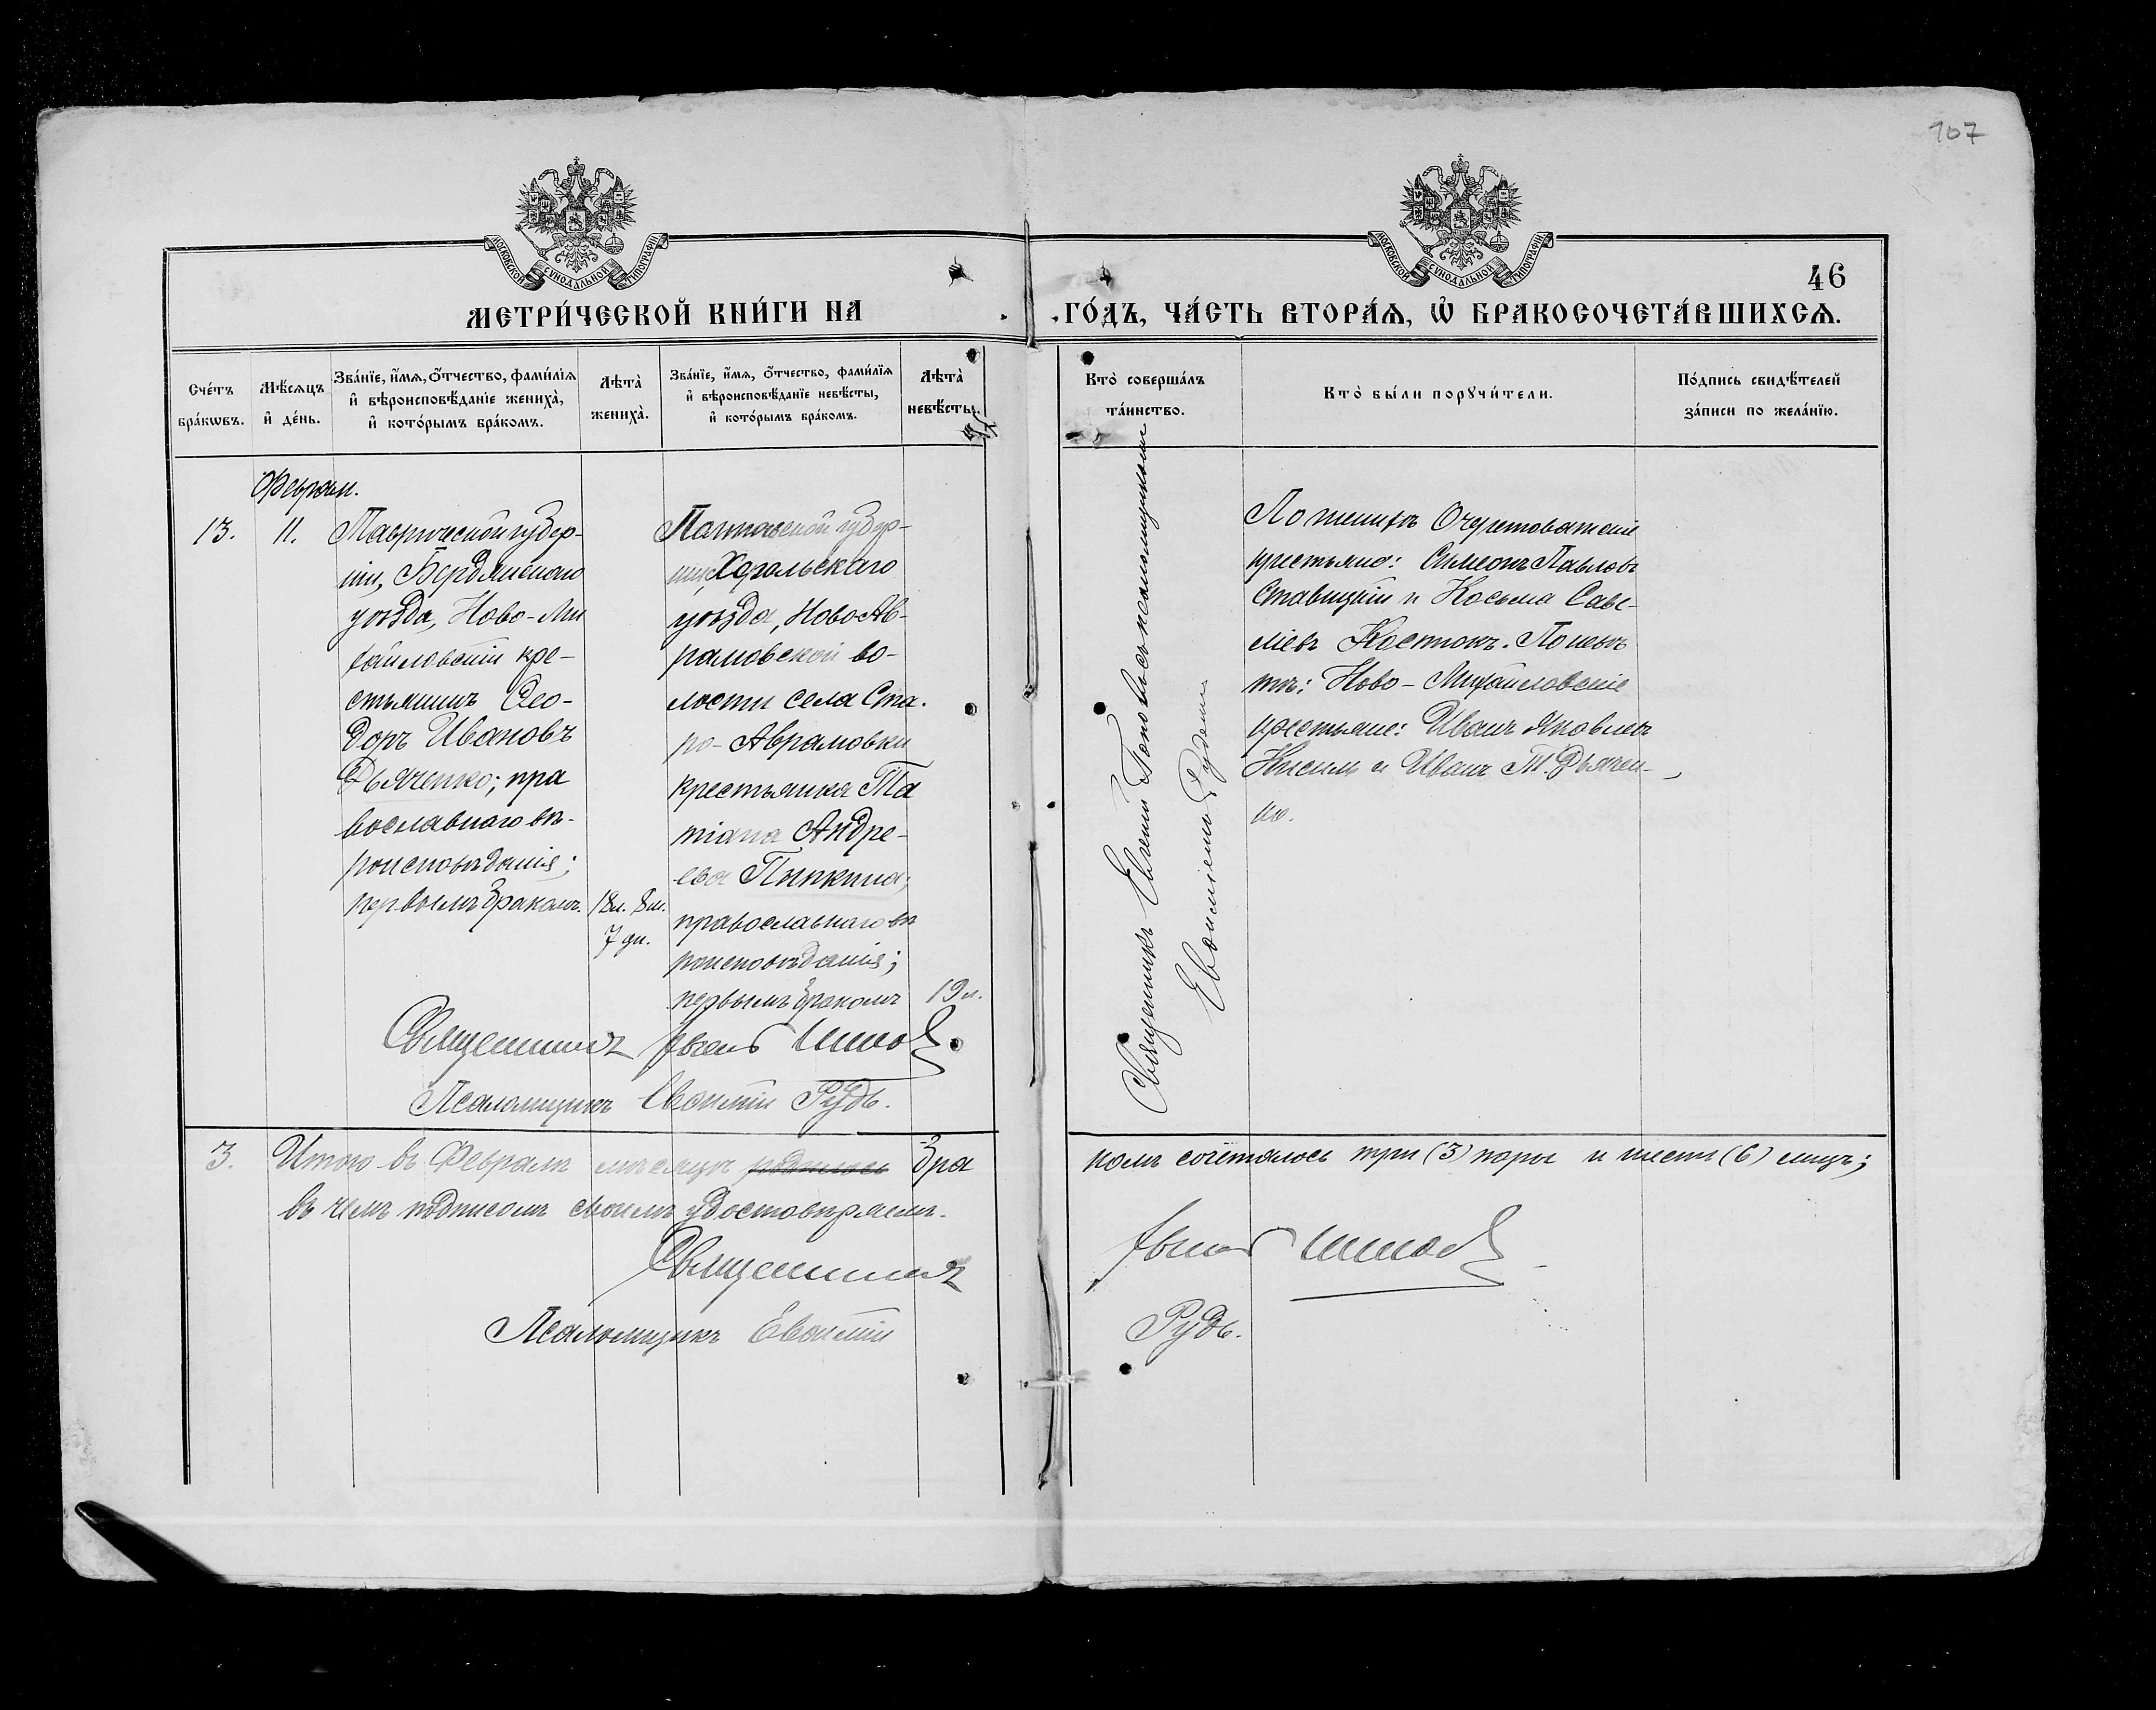 107
МОСКОВСКОЙ СѴНОДАЛЬНОЙ ТИПОГРАФІИ
МОСКОВСКОЙ СѴНОДАЛЬНОЙ ТИПОГРАФІИ
46
МЕТРИ́ЧЕСКОЙ КНИ́ГИ НА ГО́ДЪ, ЧА́СТЬ ВТОРА́Ѧ, Ѡ҆ БРАКОСОЧЕТА́ВШИХСѦ.
Сче́тъ бра́кѡвъ.
Мѣ́сяцъ и҆ де́нь.
Зва́нїе, и҆́мѧ, ѻ҆́тчество, фами́лїѧ
и҆ вѣроисповѣ́данїе жениха̀,
и҆ кото́рымъ бра́комъ.
Лѣта̀ жениха̀.
Зва́нїе, и҆́мѧ, ѻ҆́тчество, фами́лїѧ
и҆ вѣроисповѣ́данїе невѣ́сты,
и҆ кото́рымъ бра́комъ.
Лѣта̀ невѣ́сты.
Кто̀ соверша́лъ та́инство.
Кто̀ бы́ли порꙋчи́тели.
По́дпись свидѣ́телей за́писи по жела́нїю.
Феврал.
13.
11.
Таврической губер-
ніи, Бердянскаго
уѣзда, Ново-Ми
хайловскій кре-
стьянинъ Ѳео-
доръ Ивановъ
Дьяченко; пра
вославнаго вѣ-
роисповѣданія;
первымъ бракомъ.
18л. 8м.
7 дн.
Полтавской губер-
ніи, Хорольскаго
уѣзда, Ново Ав-
рамовской во-
лости села Ста.
ро-Аврамовки
крестьянка Та
тіана Андре-
ева Пипкина;
православнаго вѣ
роисповѣданія;
первымъ бракомъ
19л.
Священникъ Евгеній Поповъ съ псаломщикомъ
Евѳиміемъ Рудемъ
По женихѣ Очеретоватскіе
крестьяне: Симеонъ Павловъ
Ставицкій и Косьма Саве-
ліевъ Костюкъ. По невѣс
тѣ: Ново-Михайловскіе
крестьяне: Иванъ Яковлевъ
Кисиль и Иванъ Т. Дьячен-
ко.
Священникъ Евгеній
Псаломщикъ Евѳимій Рудь.
3.
Итого въ Февралѣ мѣсяцѣ родилось бра комъ сочеталось три (3) пары и шесть (6) лицъ;
въ чемъ подписомъ своимъ удостовѣряемъ.
Священникъ Евгеній
Псаломщикъ Евѳимій Рудь.